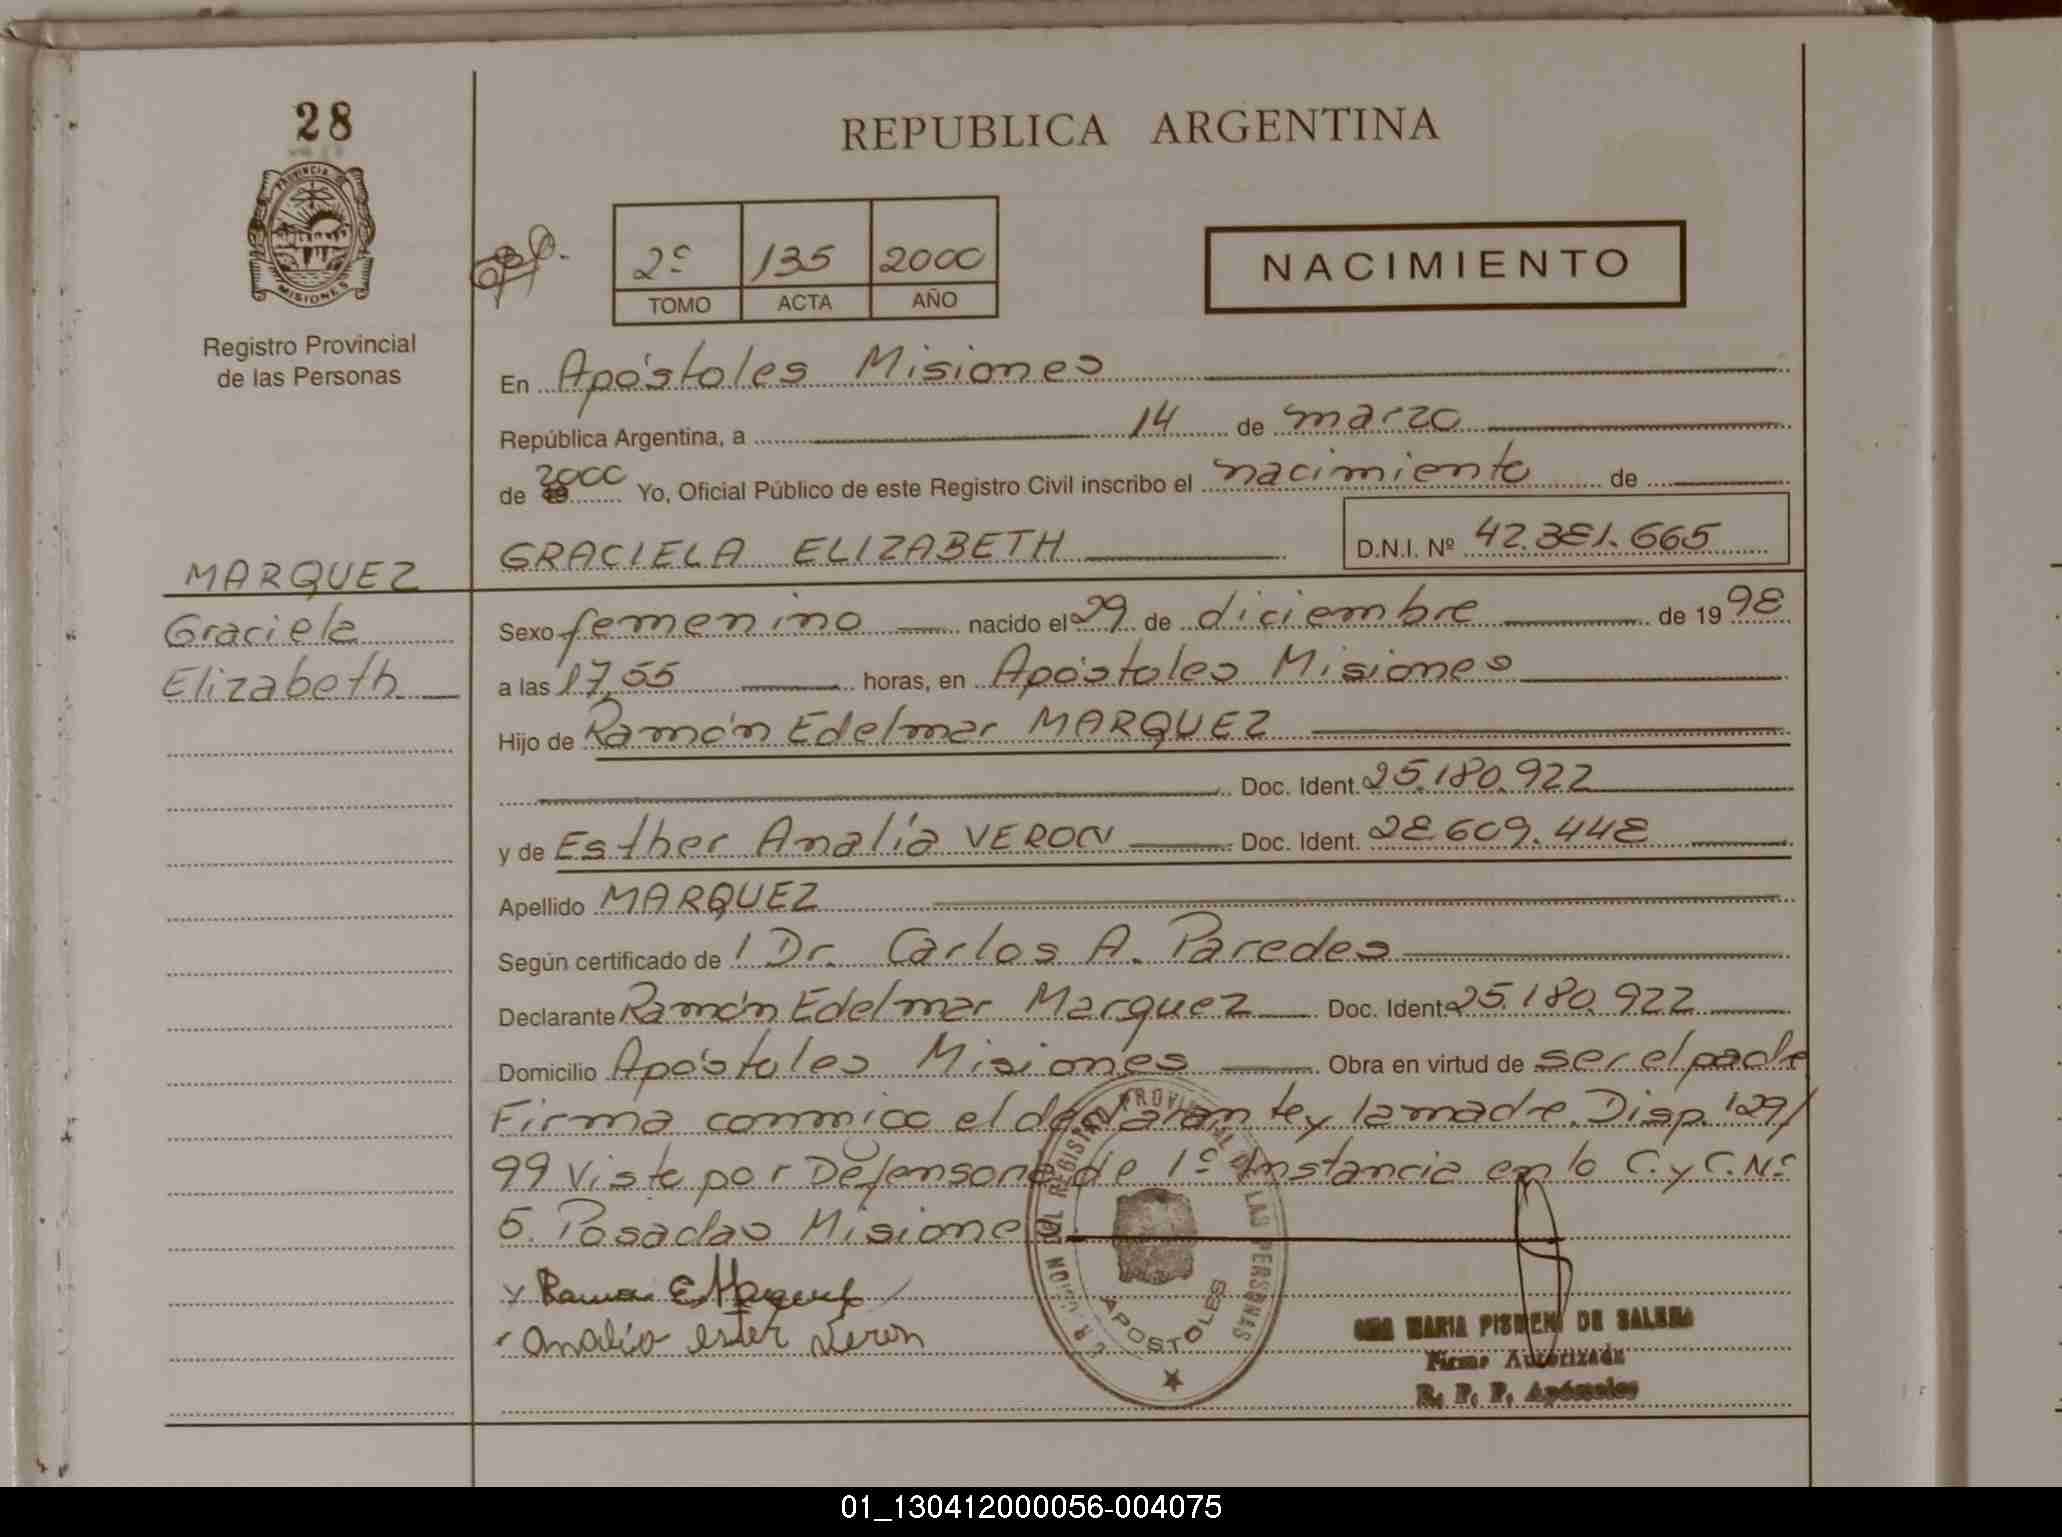 28
REPUBLICA ARGENTINA
PROVINCIA DE
MISIONES
Registro Provincial
de las Personas
2º 135 2000
TOMO ACTA AÑO
NACIMIENTO
En Apóstoles Misiones
República Argentina, a 14 de marzo
de 2000 Yo, Oficial Público de este Registro Civil inscribo el nacimiento de
GRACIELA ELIZABETH D.N.I. Nº 42.381.665
MARQUEZ
Graciela
Elizabeth
Sexo femenino nacido el 29 de diciembre de 19 98
a las 17,55 horas, en Apóstoles Misiones
Hijo de Ramón Edelmar MARQUEZ
Doc. Ident. 25.180.922
y de Esther Analía VERON Doc. Ident. 28.609.448
Apellido MARQUEZ
Según certificado de l Dr. Carlos A. Paredes
Declarante Ramón Edelmar Marquez Doc. Ident. 25.180.922
Domicilio Apóstoles Misiones Obra en virtud de ser el padre
Firma conmigo el declarante y la madre. Disp. 129/
99 Visto por Defensoria de 1º Instancia en lo C. y C. Nº
5. Posadas Misiones
Ramon E Marquez
Analia ester Veron
REGISTRO PROVINCIAL DE LAS PERSONAS
APOSTOLES
MARIA DE
Firma Autorizada
R. P. P. Apóstoles
01_130412000056-004075